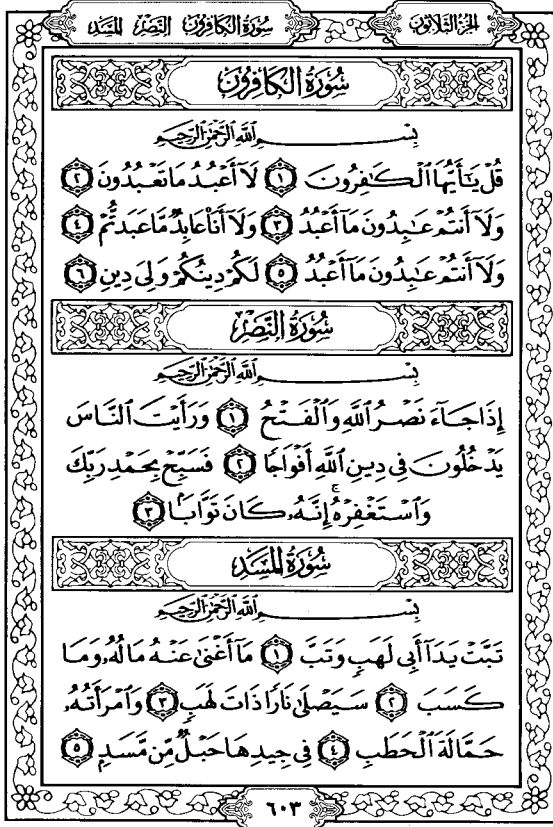 سُورَةُ الكَافِرُونَ النَّصْرِ المَسَد الجُزْءُ الثَّلَاثُونَ
سُورَةُ الكَافِرُونَ
بِسْمِ ٱللَّهِ ٱلرَّحْمَٰنِ ٱلرَّحِيمِ
قُلْ يَٰٓأَيُّهَا ٱلْكَٰفِرُونَ ١ لَآ أَعْبُدُ مَا تَعْبُدُونَ ٢
وَلَآ أَنتُمْ عَٰبِدُونَ مَآ أَعْبُدُ ٣ وَلَآ أَنَا۠ عَابِدٌ مَّا عَبَدتُّمْ ٤
وَلَآ أَنتُمْ عَٰبِدُونَ مَآ أَعْبُدُ ٥ لَكُمْ دِينُكُمْ وَلِىَ دِينِ ٦
سُورَةُ النَّصْرِ
بِسْمِ ٱللَّهِ ٱلرَّحْمَٰنِ ٱلرَّحِيمِ
إِذَا جَآءَ نَصْرُ ٱللَّهِ وَٱلْفَتْحُ ١ وَرَأَيْتَ ٱلنَّاسَ
يَدْخُلُونَ فِى دِينِ ٱللَّهِ أَفْوَاجًا ٢ فَسَبِّحْ بِحَمْدِ رَبِّكَ
وَٱسْتَغْفِرْهُ ۚ إِنَّهُۥ كَانَ تَوَّابًۢا ٣
سُورَةُ المَسَدِ
بِسْمِ ٱللَّهِ ٱلرَّحْمَٰنِ ٱلرَّحِيمِ
تَبَّتْ يَدَآ أَبِى لَهَبٍ وَتَبَّ ١ مَآ أَغْنَىٰ عَنْهُ مَالُهُۥ وَمَا
كَسَبَ ٢ سَيَصْلَىٰ نَارًا ذَاتَ لَهَبٍ ٣ وَٱمْرَأَتُهُۥ
حَمَّالَةَ ٱلْحَطَبِ ٤ فِى جِيدِهَا حَبْلٌ مِّن مَّسَدٍۭ ٥
٦٠٣